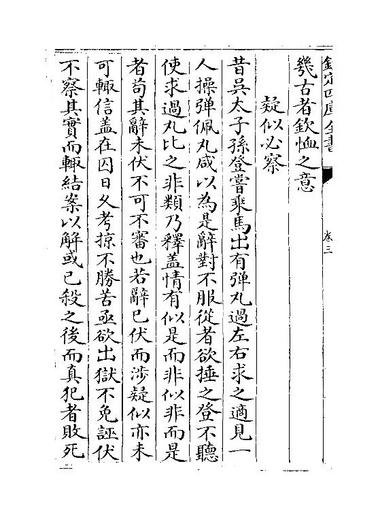 欽定四庫全書
卷三
幾古者欽恤之意
疑似必察
昔吳太子孫登嘗乘馬出有弹丸過左右求之適見一
人操弹佩丸咸以為是辭對不服從者欲捶之登不聽
使求過丸比之非類乃釋盖情有似是而非似非而是
者苟其辭未伏不可不審也若辭已伏而涉疑似亦未
可輙信盖在囚日久考掠不勝苦亟欲出獄不免誣伏
不察其實而輙結案以解或已殺之後而真犯者敗死